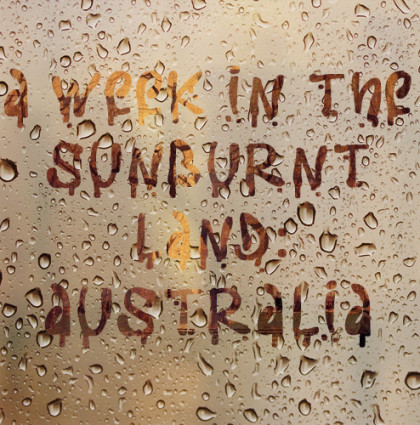 a WEEK iN THE
SUNBURNT
LAND:
aUSTRaLia